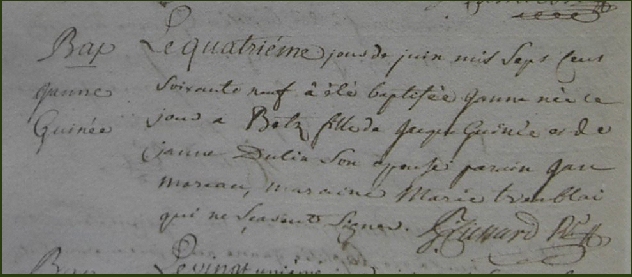 Bap
janne
Guinée
Le quatriéme jour de juin mil Sept Cent
soixante neuf à été baptisée janne née ce
jour a Belz fille de jacque Guinée et de
janne Dulia Son epouse parain jan
moreau, maraine Marie tremblai
qui ne Scavent Signer.
Bap
Le vingt unieme